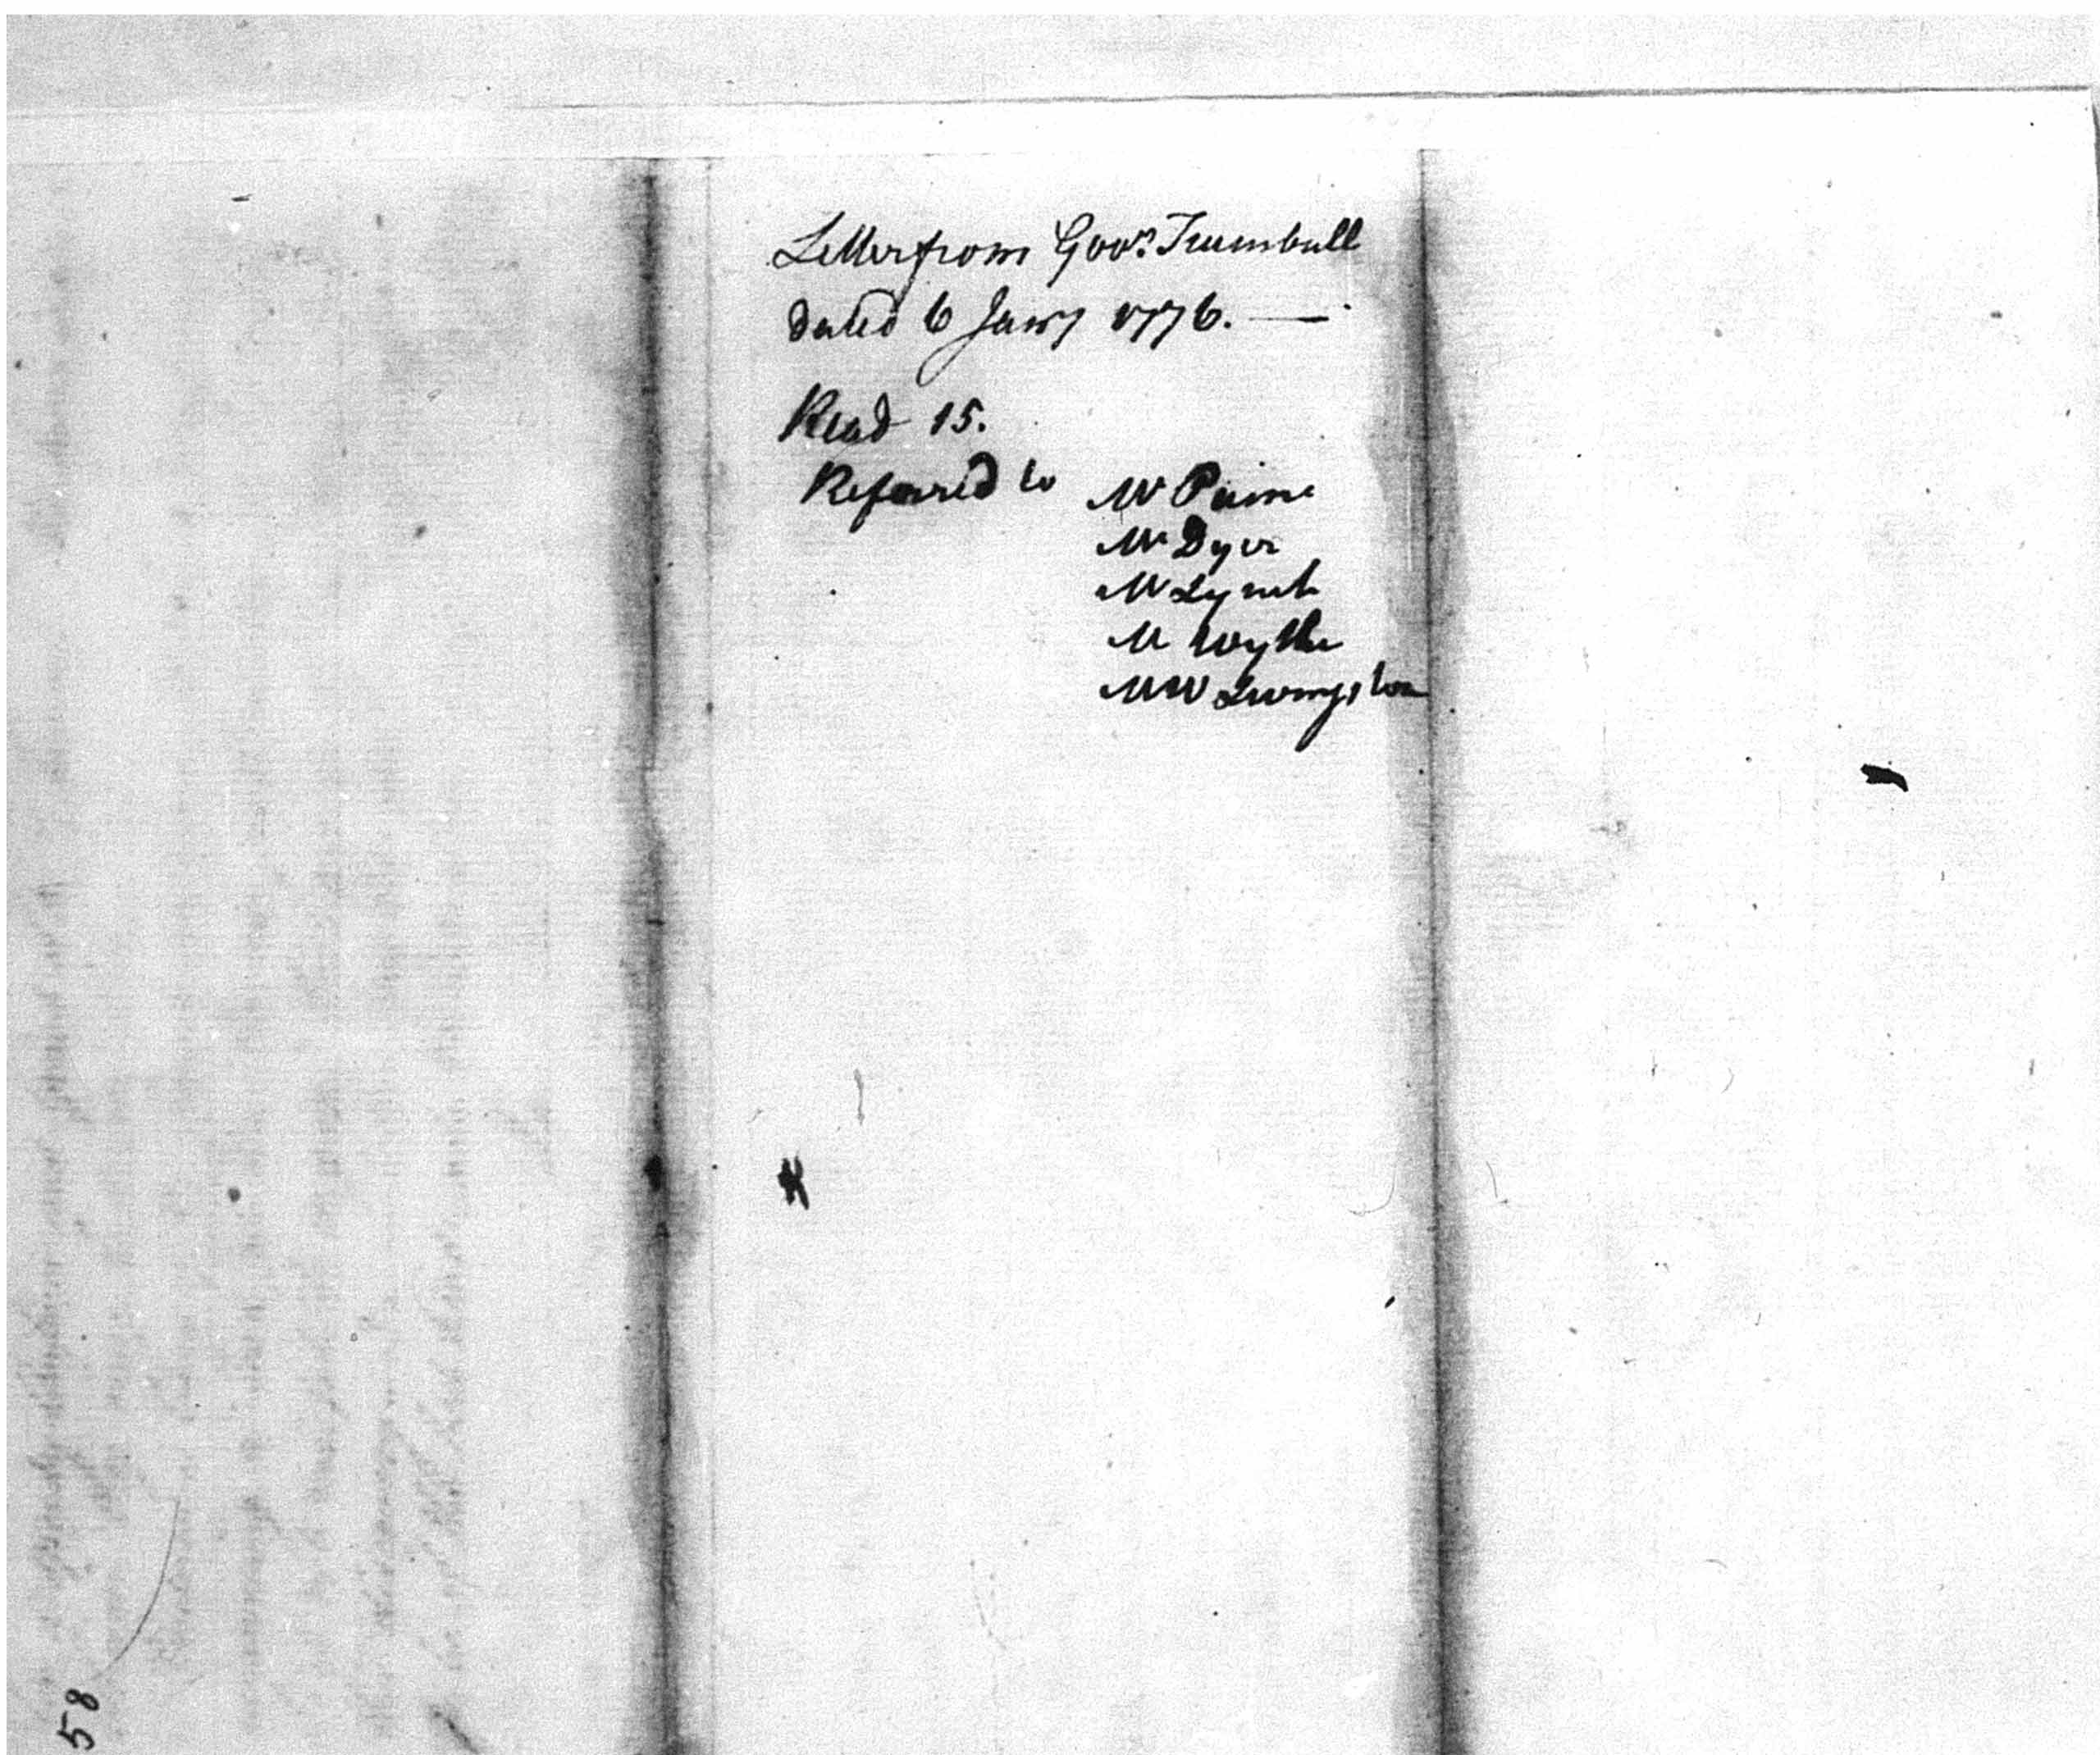 Letter from Govr. Trumbull
dated 6 Jany 1776. —
Read 15.
Referred to Mr Paine
Mr Dyer
Mr Lynch
Mr Wythe
Mr W Livingston
58